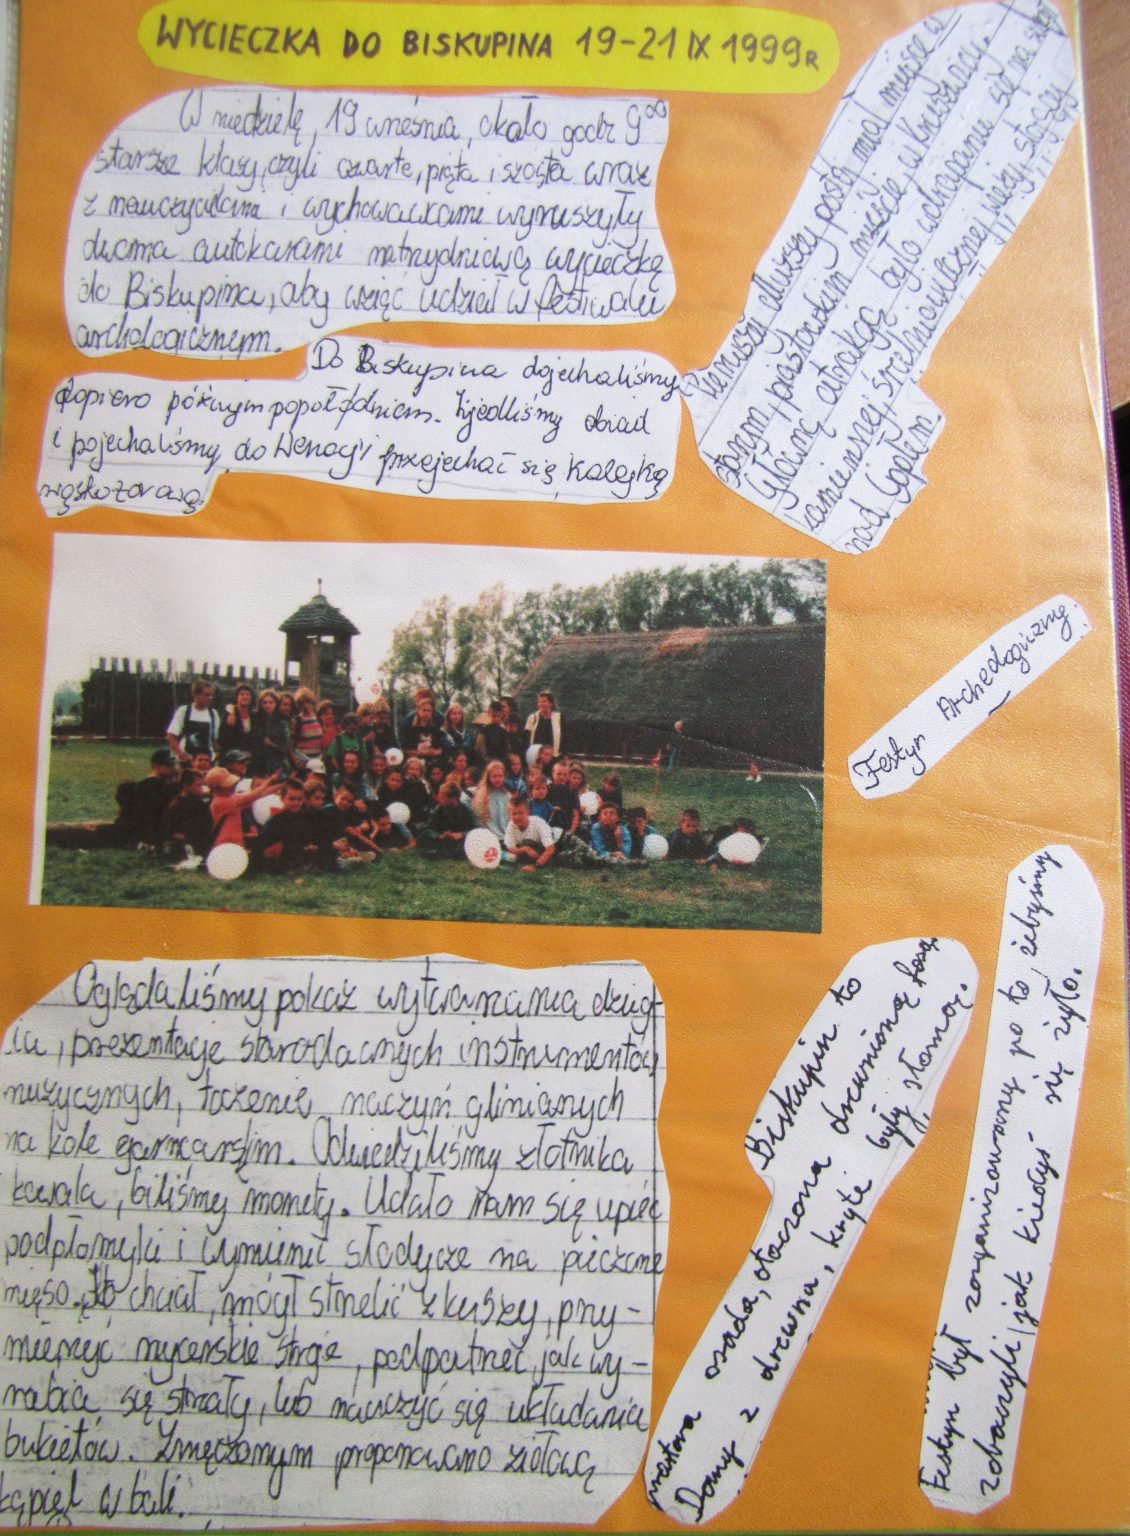 WYCIECZKA DO BISKUPINA 19-21 IX 1999R
W niedzielę, 19 wrześnina, około godz 9⁰⁰
starsze klasy, czyli czwarte, piąta i szósta wraz
z nauczycielami i wychowawkami wyruszyły
dwoma autokarami na trzydniową wycieczkę
do Biskupina, aby wziąć udział w festiwalu
archologicznym.
Do Biskupina dojechaliśmy
dopiero późnym popołudniem. Zjedliśmy obiad
i pojechaliśmy do Wenecji przejechać się kolejką
wąskotorową.
Pierwszy dłuższy postój miał miejsce w
starym, piastowskim mieście, w Kruszwicy.
Główną atrakcją było wdrapanie się na szczyt
kamiennej, średniowiecznej wieży, stojącej
nad Gopłem.
Festyn Archeologiczny
Oglądaliśmy pokaz wytwarzania dzieg-
ciu, prezentację starodawnych instrumentów
muzycznych, toczenie naczyń glinianych
na kole garncarskim. Odwiedziliśmy złotnika
kowala, biliśmy monety. Udało nam się upiec
podpłomyki i wymienić słodycze na pieczone
mięso. Kto chciał, mógł strzelić z kuszy, przy-
mierzyć rycerskie stroje, podpatrzeć jak wy-
rabia się strzały, lub nauczyć się układania
bukietów. Zmęczonym proponowano ziołową
kąpiel w bali.
Biskupin to
prastara osada, otoczona drewnianą fosą.
Domy z drewna, kryte były słomą.
Festyn był zorganizowany po to, żebyśmy
zobaczyli jak kiedyś się żyło.